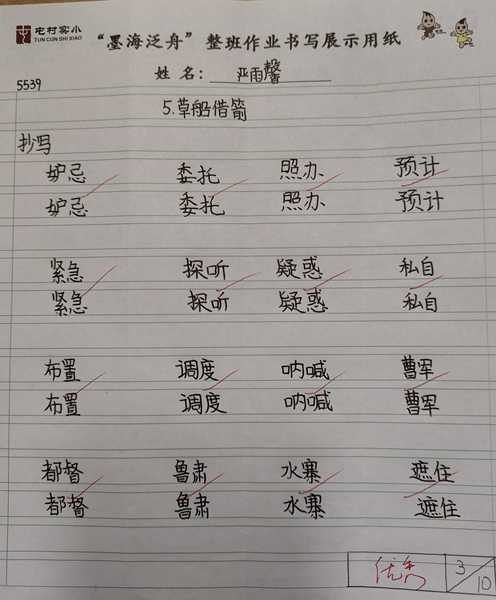 屯村实小
TUN CUN SHI XIAO
“墨海泛舟”整班作业书写展示用纸
姓 名：严雨馨
5539
5.草船借箭
抄写
妒忌 委托 照办 预计
妒忌 委托 照办 预计
紧急 探听 疑惑 私自
紧急 探听 疑惑 私自
布置 调度 呐喊 曹军
布置 调度 呐喊 曹军
都督 鲁肃 水寨 遮住
都督 鲁肃 水寨 遮住
优秀 3/10